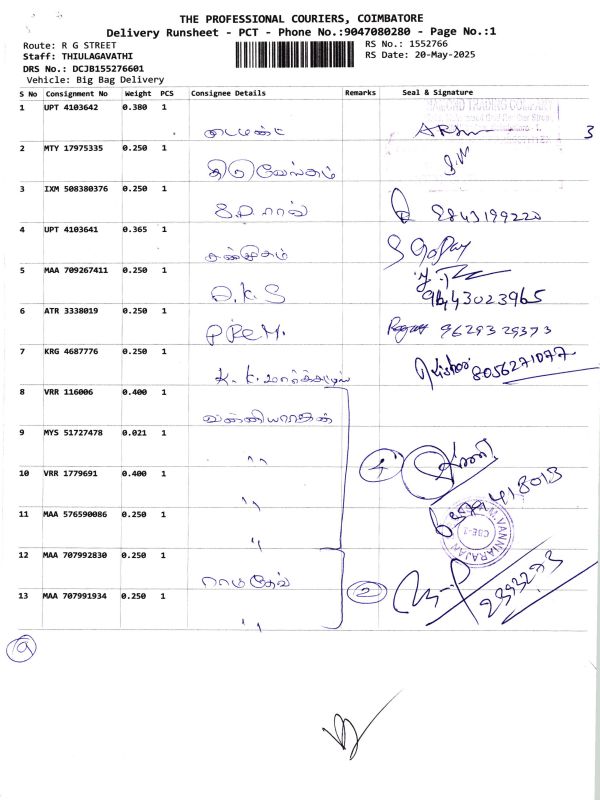 THE PROFESSIONAL COURIERS, COIMBATORE
Delivery Runsheet - PCT - Phone No.:9047080280 - Page No.:1
Route: R G STREET
RS No.: 1552766
Staff: THIULAGAVATHI
RS Date: 20-May-2025
DRS No.: DCJB155276601
Vehicle: Big Bag Delivery
S No Consignment No Weight PCS Consignee Details Remarks Seal & Signature
1 UPT 4103642 0.380 1
3
2 MTY 17975335 0.250 1
3 IXM 508380376 0.250 1
S.D. ராவ் 9843199220
4 UPT 4103641 0.365 1
சண்முகம் S Gopay
5 MAA 709267411 0.250 1
D.K.S 9443023965
6 ATR 3338019 0.250 1
PREM. 9629329373
7 KRG 4687776 0.250 1
K.K. மார்க்கட்டிங் Kishor 8056271077
8 VRR 116006 0.400 1
வன்னியராஜன்
9 MYS 51727478 0.021 1
"
4
10 VRR 1779691 0.400 1
"
11 MAA 576590086 0.250 1
"
VANNIARAJAN
CBE-1
12 MAA 707992830 0.250 1
ராமதேவ்
2
2393273
13 MAA 707991934 0.250 1
"
9